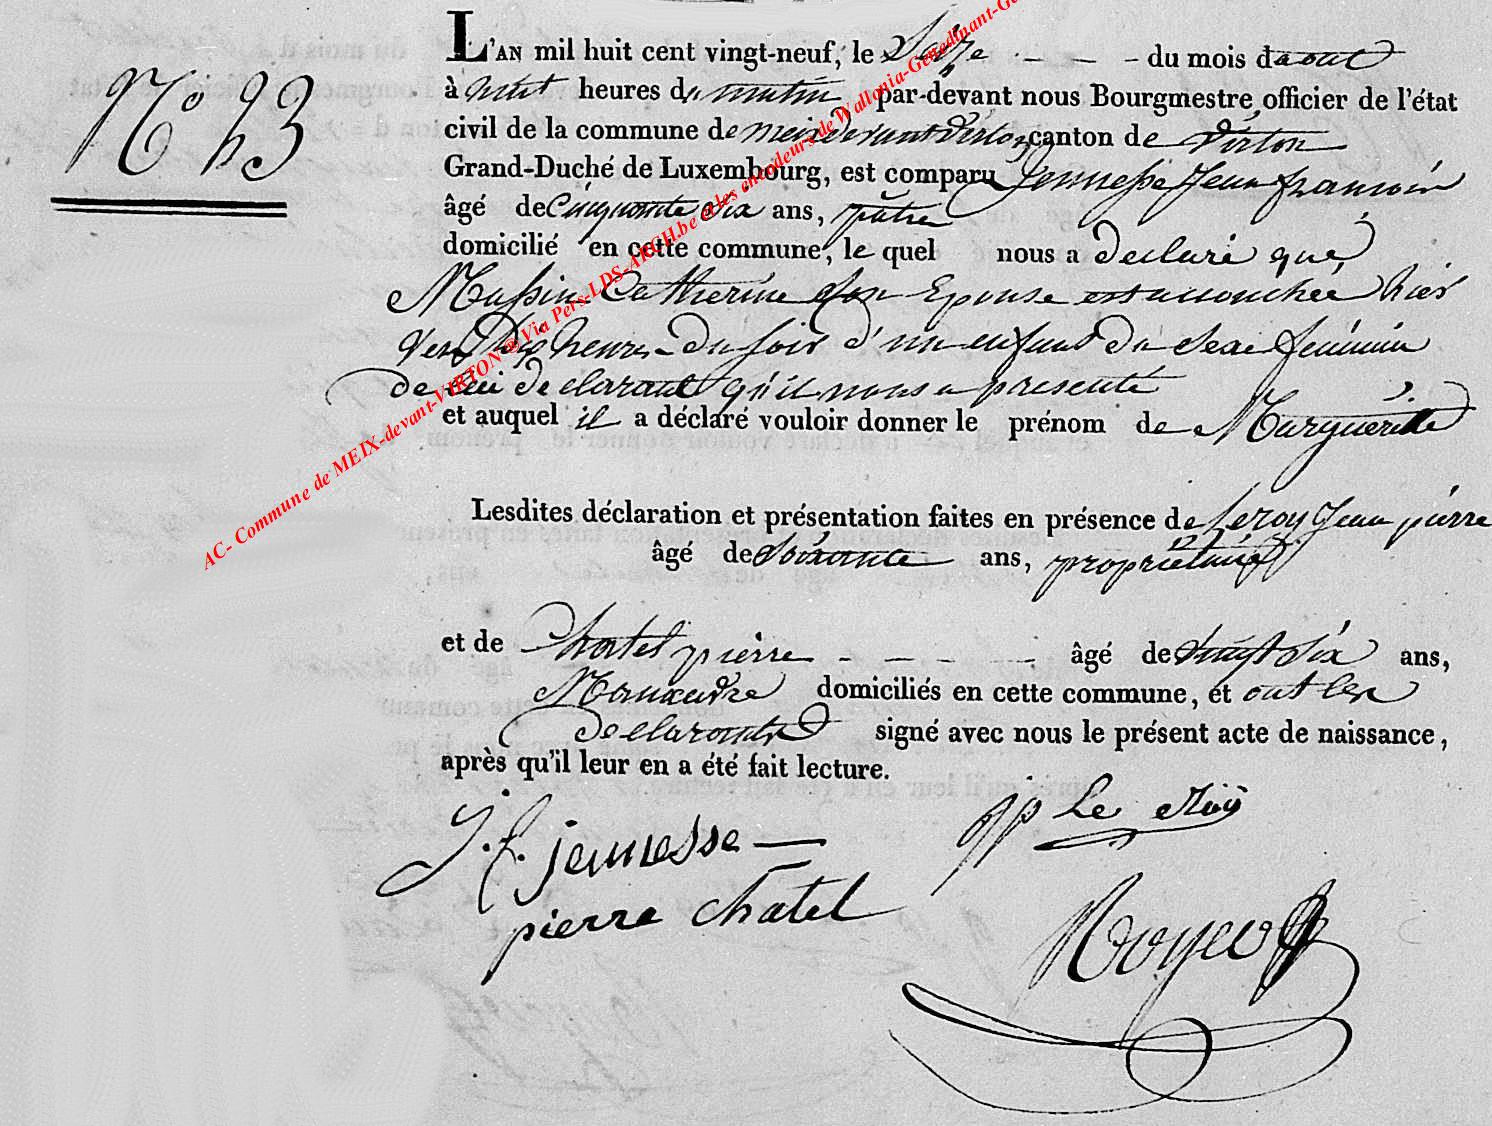 N° 23
L'AN mil huit cent vingt-neuf, le Seize - - - du mois daout
à huit heures du matin par-devant nous Bourgmestre officier de l'état
civil de la commune de meix devant virton canton de Virton
Grand-Duché de Luxembourg, est comparu Jeunesse Jean françois
âgé de Cinquante six ans, pâtre
domicilié en cette commune, le quel nous a declaré que
Massin Catherine son Epouse est accouchée hier
vers dix heures du soir d'un enfant du sexe féminin
de lui declarant qu'il nous a presenté
et auquel il a déclaré vouloir donner le prénom de Marguerite
Lesdites déclaration et présentation faites en présence de Leroy Jean pierre
âgé de soixante ans, propriétaire
et de Chatel pierre - - - - - âgé de vingt six ans,
Manœuvre domiciliés en cette commune, et ont les
declarants signé avec nous le présent acte de naissance,
après qu'il leur en a été fait lecture.
J. f. jeunesse
jp Le Roy
pierre chatel
AC- Commune de MEIX-devant-VIRTON ® Via Pers-LDS-ARCH.be et les encodeurs de Wallonia-Genedinant-Ge